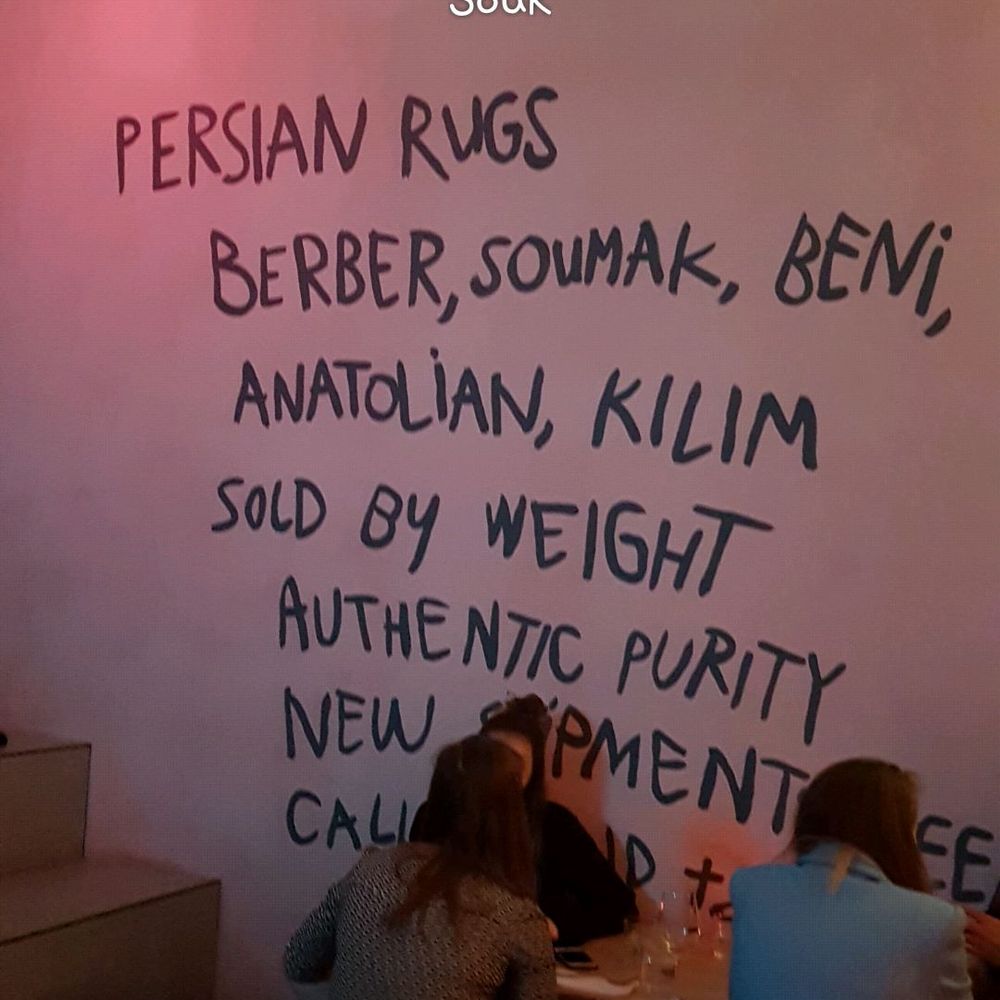 Souk
PERSIAN RUGS
BERBER, SOUMAK, BENi,
ANATOLiAN, KILIM
SOLD BY WEIGHT
AUTHENTIC PURITY
NEW
CALL